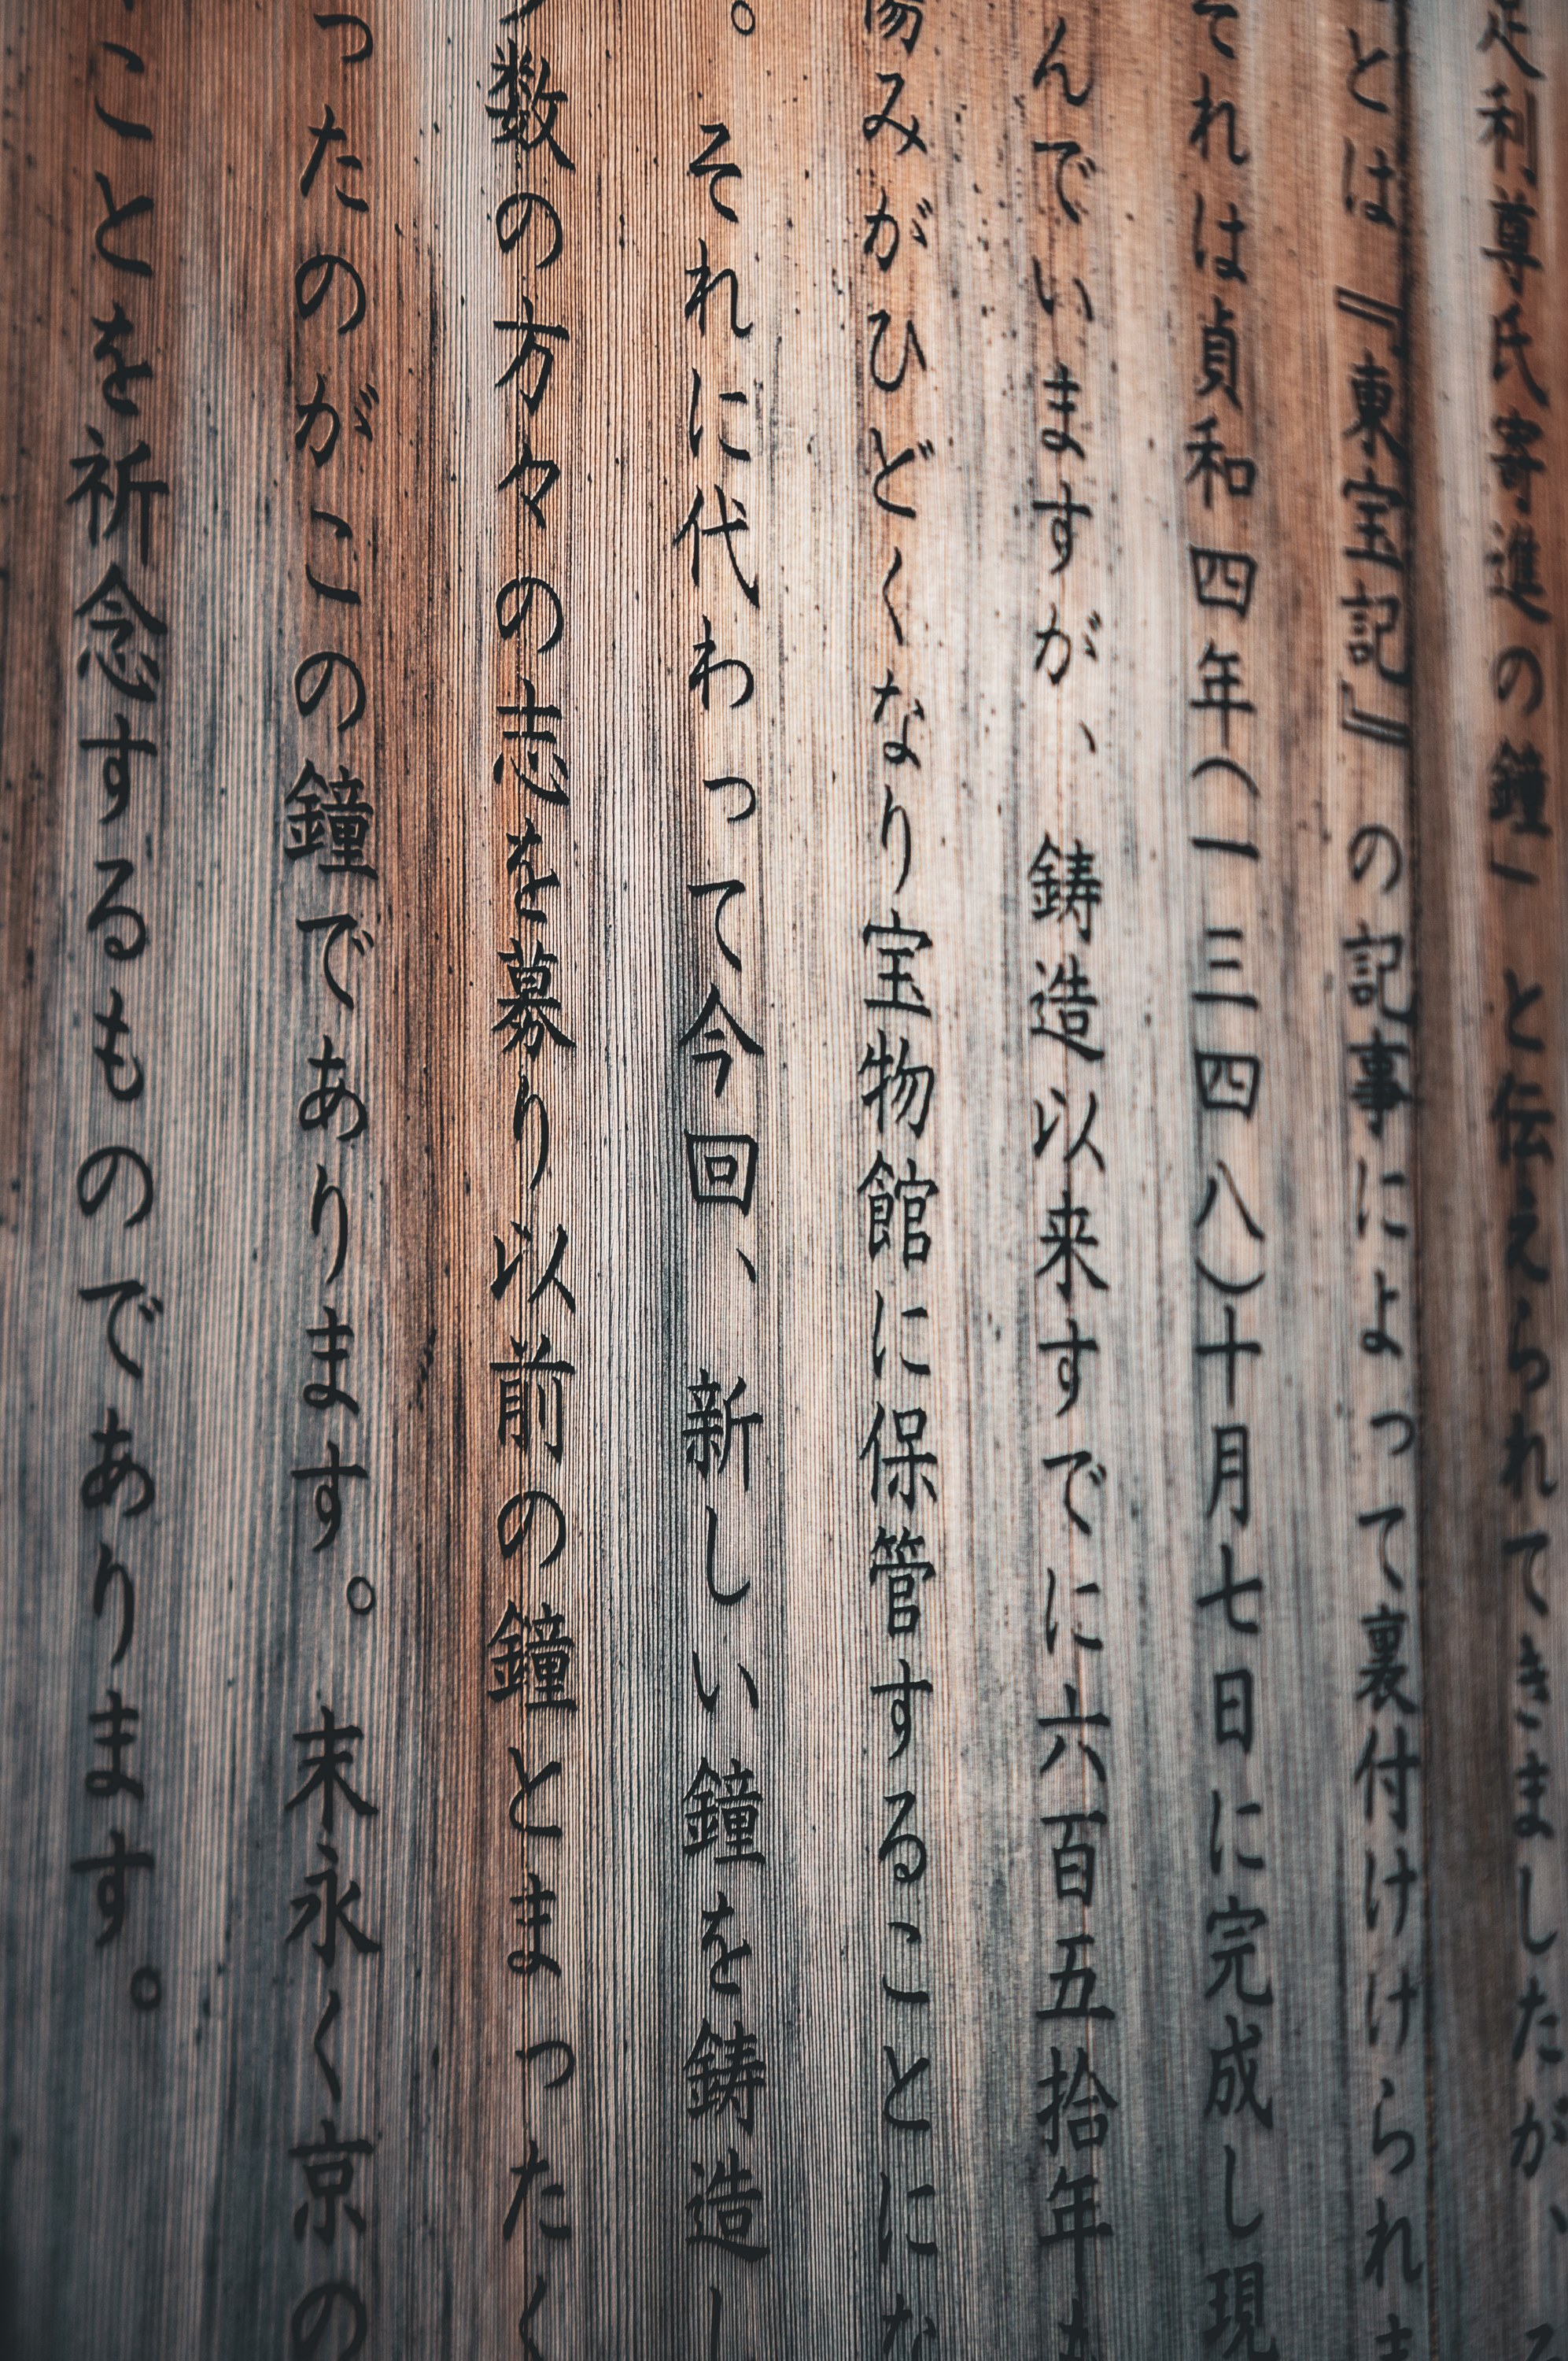 足利尊氏寄進の鐘」と伝えられてきましたが、
とは『東宝記』の記事によって裏付けけられま
それは貞和四年(一三四八)十月七日に完成し現
んでいますが、鋳造以来すでに六百五拾年も
傷みがひどくなり宝物館に保管することにな
。それに代わって今回、新しい鐘を鋳造し
数の方々の志を募り以前の鐘とまったく
ったのがこの鐘であります。末永く京の
ことを祈念するものであります。